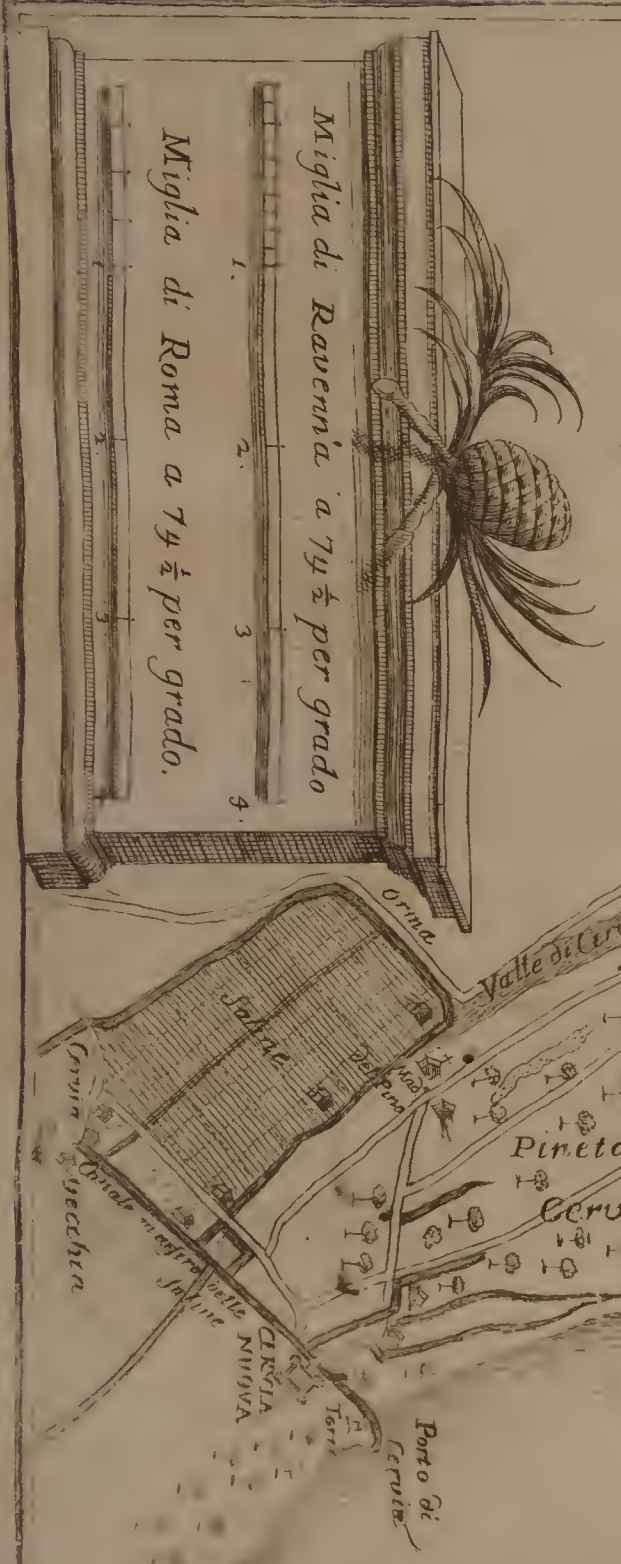 Miglia di Ravenna a 74 ½ per grado
1. 2. 3 4.
Miglia di Roma a 74 ½ per grado.
1 2. 3
Orma
Valle di
Saline
Mad
Del Pino
Pineta
Cerv
Cervia
Vecchia
Canale delle
Saline
CERVIA
NUOVA
Torre
Porto di
Cervia